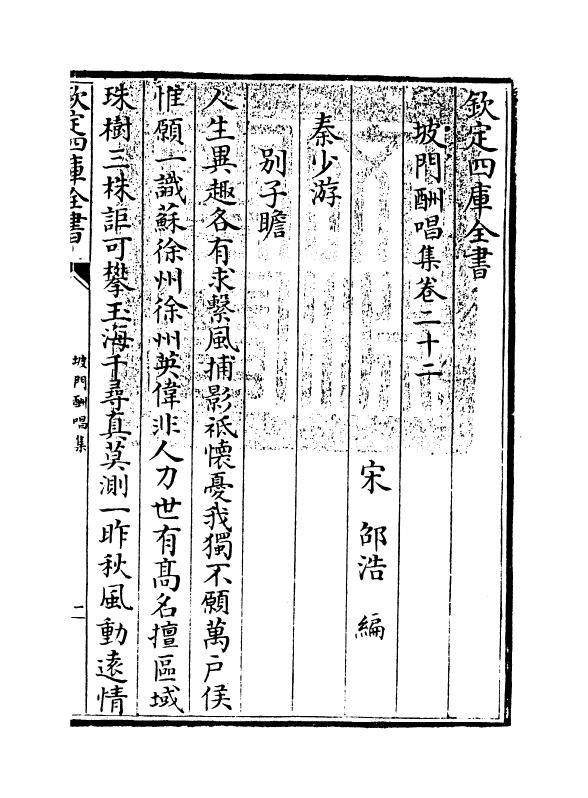 欽定四庫全書
坡門酬唱集卷二十二
宋 邵浩 編
秦少游
别子瞻
人生異趣各有求繫風捕影祗懐憂我獨不願萬户侯
惟願一識蘇徐州徐州英偉非人力世有髙名擅區域
珠樹三株詎可攀玉海千尋真莫測一昨秋風動逺情
欽定四庫全書
坡門酬唱集
二